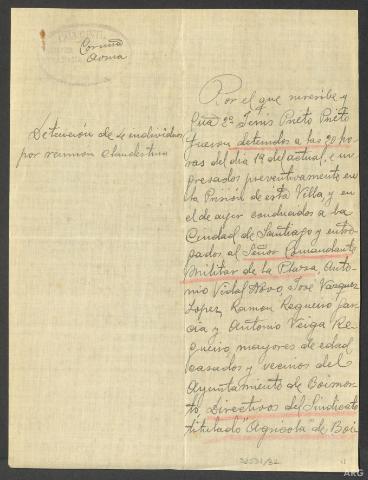 Coruña
Detención de 4 individuos
por reunion clandestina
Por el que suscribe y
Gua 2º Prieto Prieto
fueron detenidos a las 20 ho-
ras del dia 19 del actual, e in-
gresados preventivamente en
la Prisión de esta Villa, y en
el de ayer conducidos a la
Ciudad de Santiago y entre-
gados al Señor Comandante
Militar de la Plaza, Anto-
nio Vidal Novo, Jose Vázquez
Lopez, Ramon Regueiro Gar-
cia y Antonio Veiga Re-
gueiro, mayores de edad,
casados y vecinos del
Ayuntamiento de Boimor-
to, Directivos del Sindicato
titulado "Agricola" de Boi
ARG